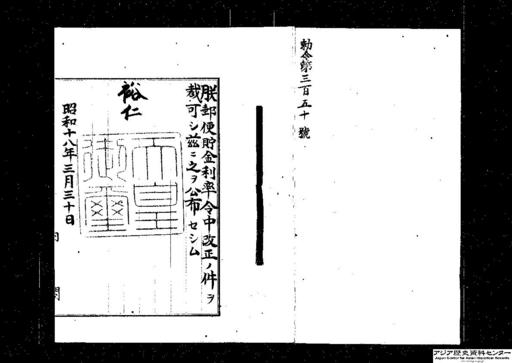 勅令第三百五十號
朕郵便貯金利率令中改正ノ件ヲ
裁可シ玆ニ之ヲ公布セシム
裕仁
天皇御璽
昭和十八年三月三十日
内 閣
アジア歴史資料センター
Japan Center for Asian Historical Records